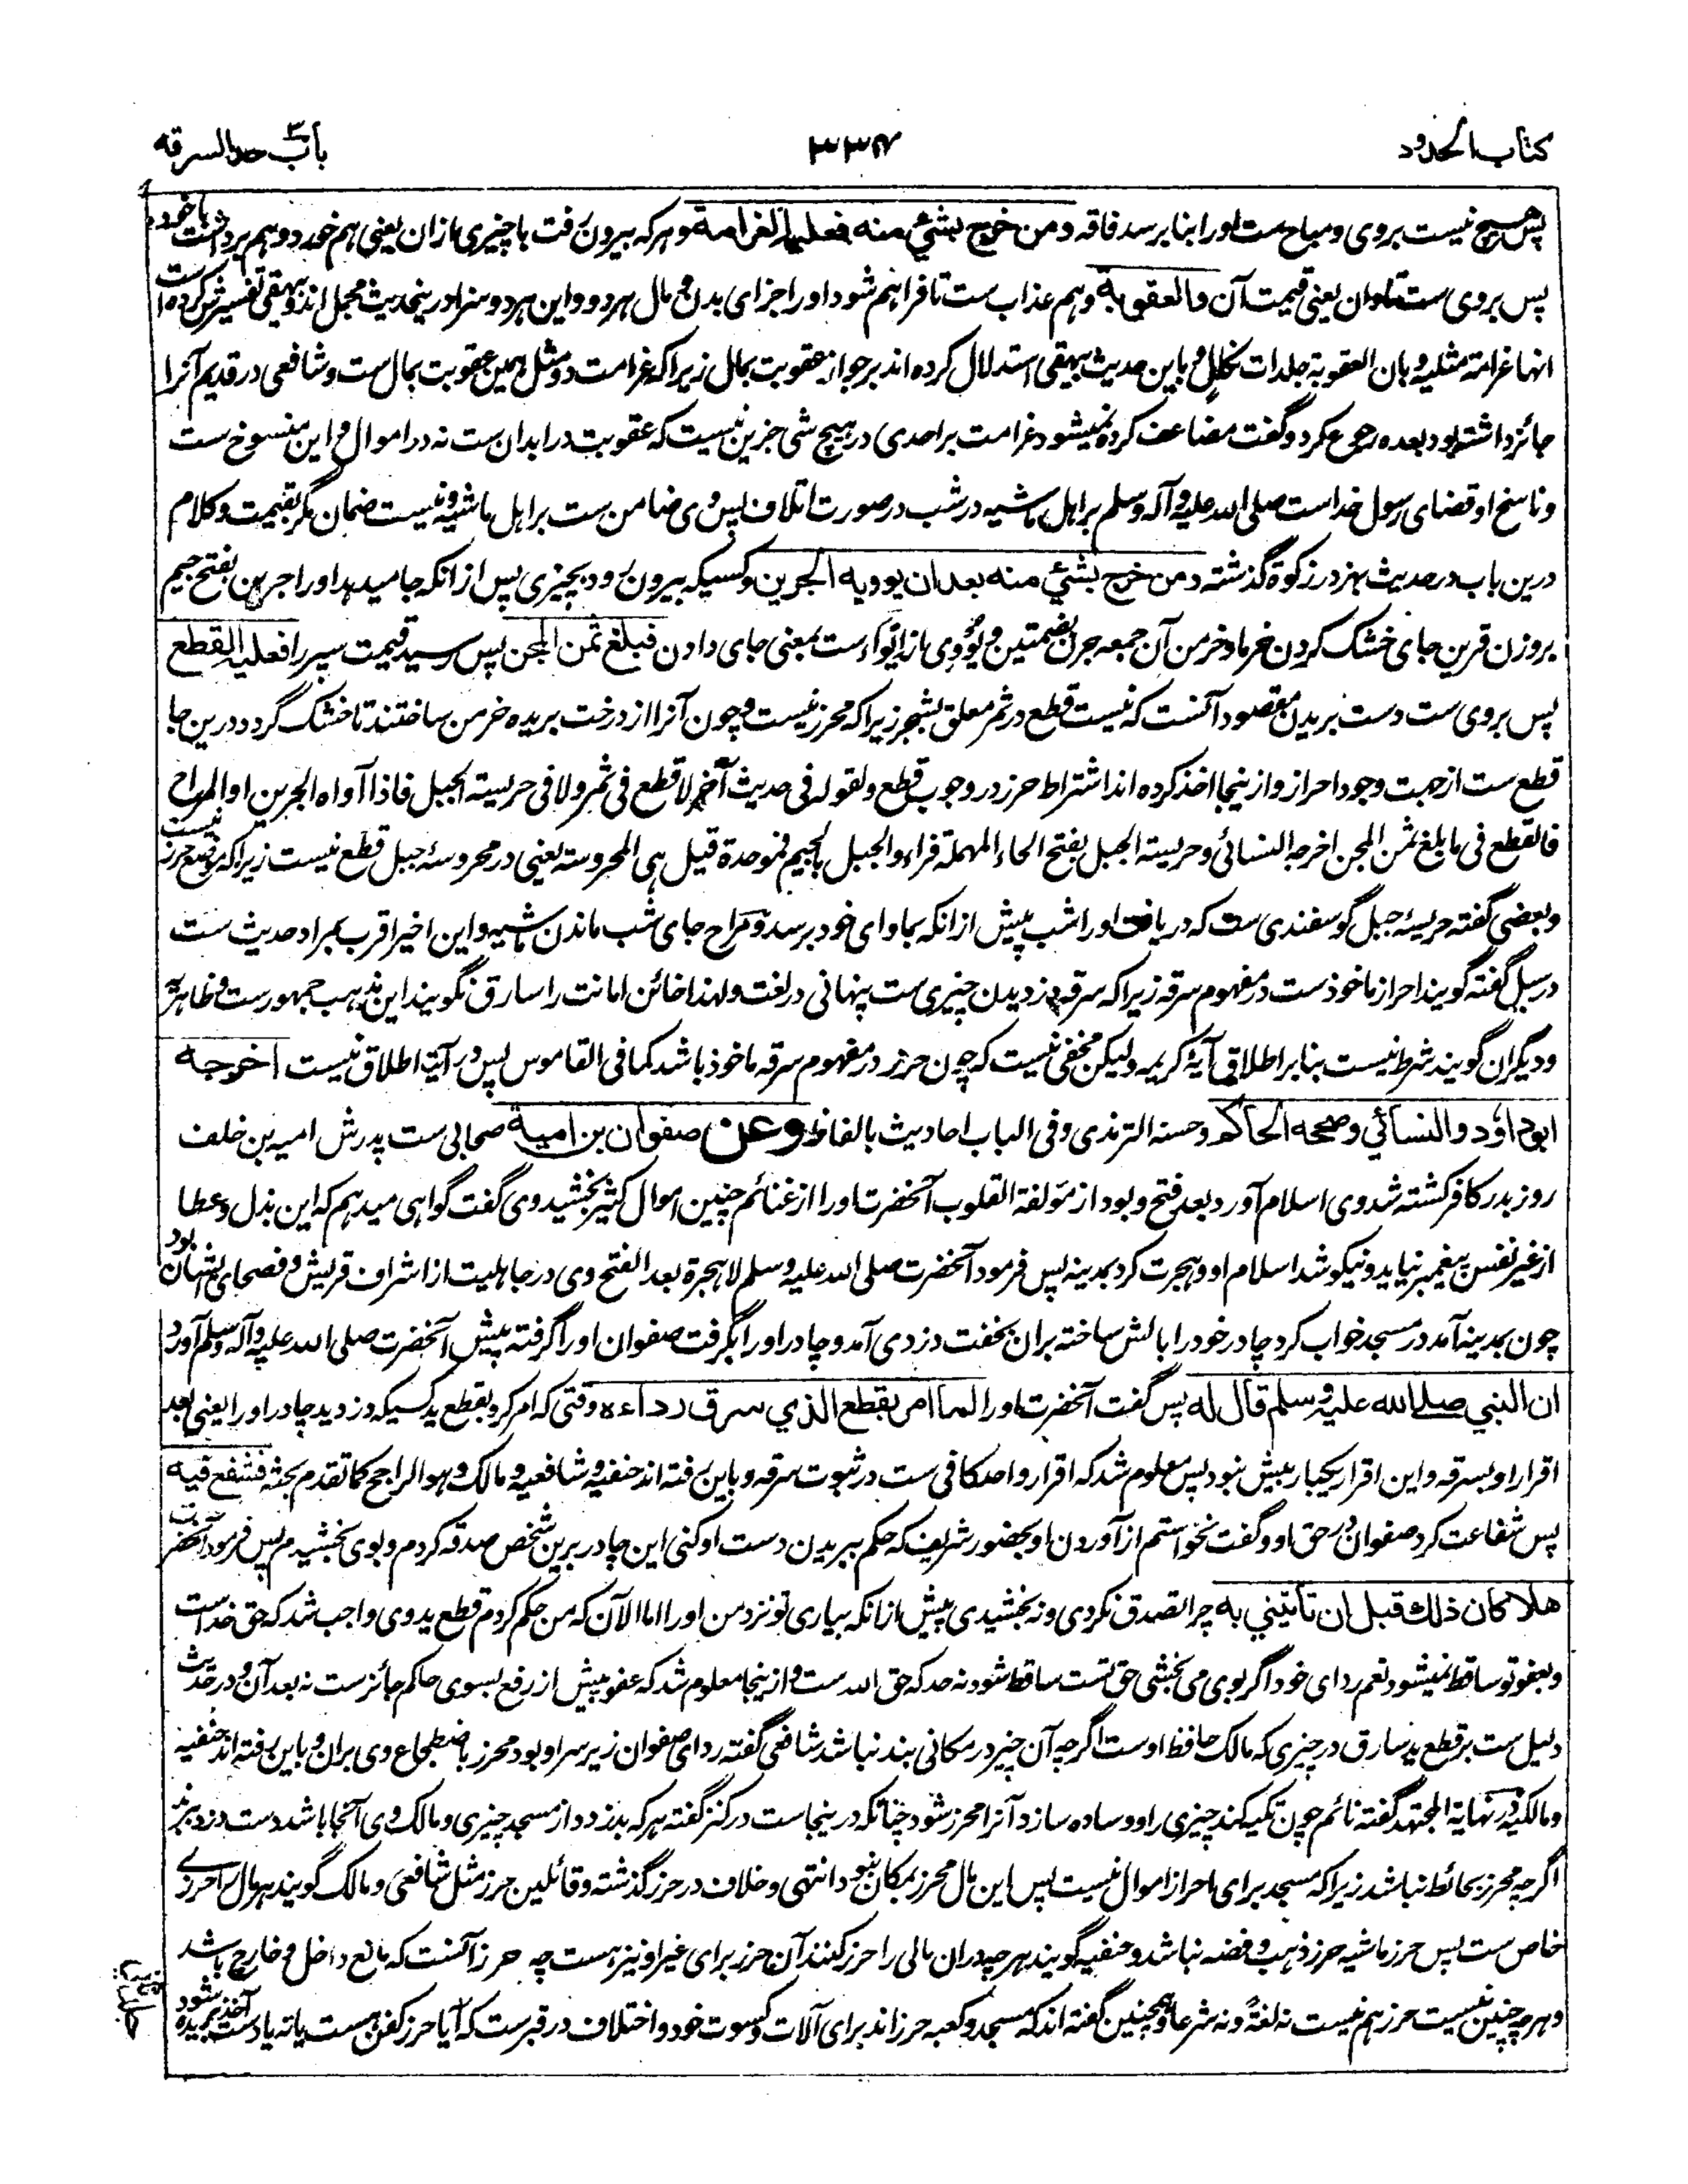 کتاب الحدود
۳۳۴
باب حد السرقه
پس هیچ نیست بروی و مباح ست اورا بنا بر سد فاقه ومن خرج بشئ منه فعلیه الغرامة و هر که بیرون رفت با چیزی ازان یعنی هم خورد و هم برداشت با خود
پس بروی ست تاوان یعنی قیمت آن والعقوبة و هم عذاب ست تا فراهم شود اورا جزای بدن و مال هر دو و این هر دو سزا درینحدیث مجمل اند و بیهقی تفسیرش کرده است
انها غرامة مثلیه وبان العقوبة جلدات نکال و باین حدیث بیهقی استدلال کرده اند بر جواز عقوبت بمال زیرا که غرامت دو مثل همین عقوبت بمال ست و شافعی در قدیم آنرا
جائز داشته بود بعده رجوع کرد و گفت مضاعف کرده نمیشود غرامت بر احدی در هیچ شی جزین نیست که عقوبت در ابدان ست نه در اموال و این منسوخ ست
و ناسخ او قضای رسول خداست صلی الله علیه وآله وسلم بر اهل ماشیه در شب در صورت اتلاف پس وی ضامن ست بر اهل ماشیه و نیست ضمان مگر بقیمت و کلام
درین باب در حدیث بهز در زکوة گذشته ومن خرج بشئ منه بعد ان یوویه الجرین و کسیکه بیرون رود بچیزی پس ازانکه جا میدهد اورا جرین بفتح جیم
بروزن قرین جای خشک کردن خرما و خرمن آن جمعه جرن بضمتین و یؤوی از ایواء ست بمعنی جای دادن فبلغ ثمن المجن پس رسید قیمت سپر را فعلیه القطع
پس بروی ست دست بریدن مقصود آنست که نیست قطع در ثمر معلق بشجر زیرا که محرز نیست و چون آنرا از درخت بریده خرمن ساختند تا خشک گردد درین جا
قطع ست از جهت وجود احراز و ازینجا اخذ کرده اند اشتراط حرز در وجوب قطع ولقوله فی حدیث آخر لا قطع فی ثمر ولا فی حریسة الجبل فاذا آواه الجرین او المراح
فالقطع فی ما بلغ ثمن المجن اخرجه النسائی وحریسة الجبل بفتح الحاء المهملة فراء والجبل بالجیم فموحدة قیل هی المحروسة یعنی در محروسهٔ جبل قطع نیست زیرا که موضع حرز نیست
و بعضی گفته حریسهٔ جبل گوسفندی ست که دریافت اورا شب پیش ازانکه بماوای خود برسد و مراح جای شب ماندن ماشیه و این اخیر اقرب بمراد حدیث ست
در سبل گفته گویند احراز ماخوذ ست در مفهوم سرقه زیرا که سرقه دزدیدن چیزی ست پنهانی در لغت ولهذا خائن امانت را سارق نگویند این مذهب جمهور ست و ظاهریه
و دیگران گویند شرط نیست بنا بر اطلاق آیهٔ کریمه ولیکن مخفی نیست که چون حرز در مفهوم سرقه ماخوذ باشد کما فی القاموس پس در آیة اطلاق نیست اخرجه
ابوداؤد والنسائي وصححه الحاکم وحسنه الترمذی وفی الباب احادیث بالفاظ وعن صفوان بن امیة صحابی ست پدرش امیه بن خلف
روز بدر کافر کشته شد وی اسلام آورد بعد فتح و بود از مؤلفة القلوب آنحضرت اورا از غنائم حنین اموال کثیر بخشید وی گفت گواهی میدهم که این بذل و عطا
از غیر نفس پیغمبر نیاید و نیکو شد اسلام او و هجرت کرد بمدینه پس فرمود آنحضرت صلی الله علیه وسلم لا هجرة بعد الفتح وی در جاهلیت از اشراف قریش و فصحای ایشان بود
چون بمدینه آمد در مسجد خواب کرد چادر خود را بالش ساخته بران بخفت دزدی آمد و چادر اورا بگرفت صفوان اورا گرفته پیش آنحضرت صلی الله علیه وآله وسلم آورد
ان النبي صلے الله علیه وسلم قال له پس گفت آنحضرت اورا لما امر بقطع الذي سرق رداءه وقتی که امر کرد بقطع ید کسیکه دزدید چادر اورا یعنی بعد
اقرار او بسرقه و این اقرار یکبار بیش نبود پس معلوم شد که اقرار واحد کافی ست در ثبوت سرقه و باین رفته اند حنفیه و شافعیه و مالک وهو الراجح کما تقدم بحثه فشفع فیه
پس شفاعت کرد صفوان در حق او و گفت نخواستم از آوردن او بحضور شریف که حکم ببریدن دست او کنی این چادر برین شخص صدقه کردم و بوی بخشیدم پس فرمود آنحضرت
هلا کان ذلك قبل ان تأتیني به چرا تصدق نکردی و نه بخشیدی پیش ازانکه بیاری تو نزد من اورا اما الآن که من حکم کردم قطع ید وی واجب شد که حق خداست
و بعفو تو ساقط نمیشود نعم ردای خود اگر بوی می بخشی حق تست ساقط شود نه حد که حق الله ست و ازینجا معلوم شد که عفو پیش از رفع بسوی حاکم جائز ست نه بعد آن و در حدیث
دلیل ست بر قطع ید سارق در چیزی که مالک حافظ اوست اگرچه آن چیز در مکانی بند نباشد شافعی گفته ردای صفوان زیر سر او بود محرز باضطجاع وی بران و باین رفته اند حنفیه
و مالکیه در نهایة المجتهد گفته نائم چون تکیه کند چیزی را و وساده سازد آنرا محرز شود چنانکه درینجاست در کنز گفته هر که بدزدد از مسجد چیزی و مالک وی آنجا باشد دست دزد ببرند
اگرچه محرز بحائط نباشد زیرا که مسجد برای احراز اموال نیست پس این مال محرز بمکان نبود انتهی و خلاف در حرز گذشته و قائلین حرز مثل شافعی و مالک گویند هر مال را حرزے
خاص ست پس حرز ماشیه حرز ذهب و فضه نباشد و حنفیه گویند هر چه دران مالی را حرز کنند آن حرز برای غیر او نیز هست چه حرز آنست که مانع داخل و خارج باشد
و هر چه چنین نیست حرز هم نیست نه لغةً و نه شرعا و همچنین گفته اند که مسجد و کعبه حرز اند برای آلات و کسوت خود و اختلاف در قبر ست که آیا حرز کفن هست یا نه یا دست بریده شود